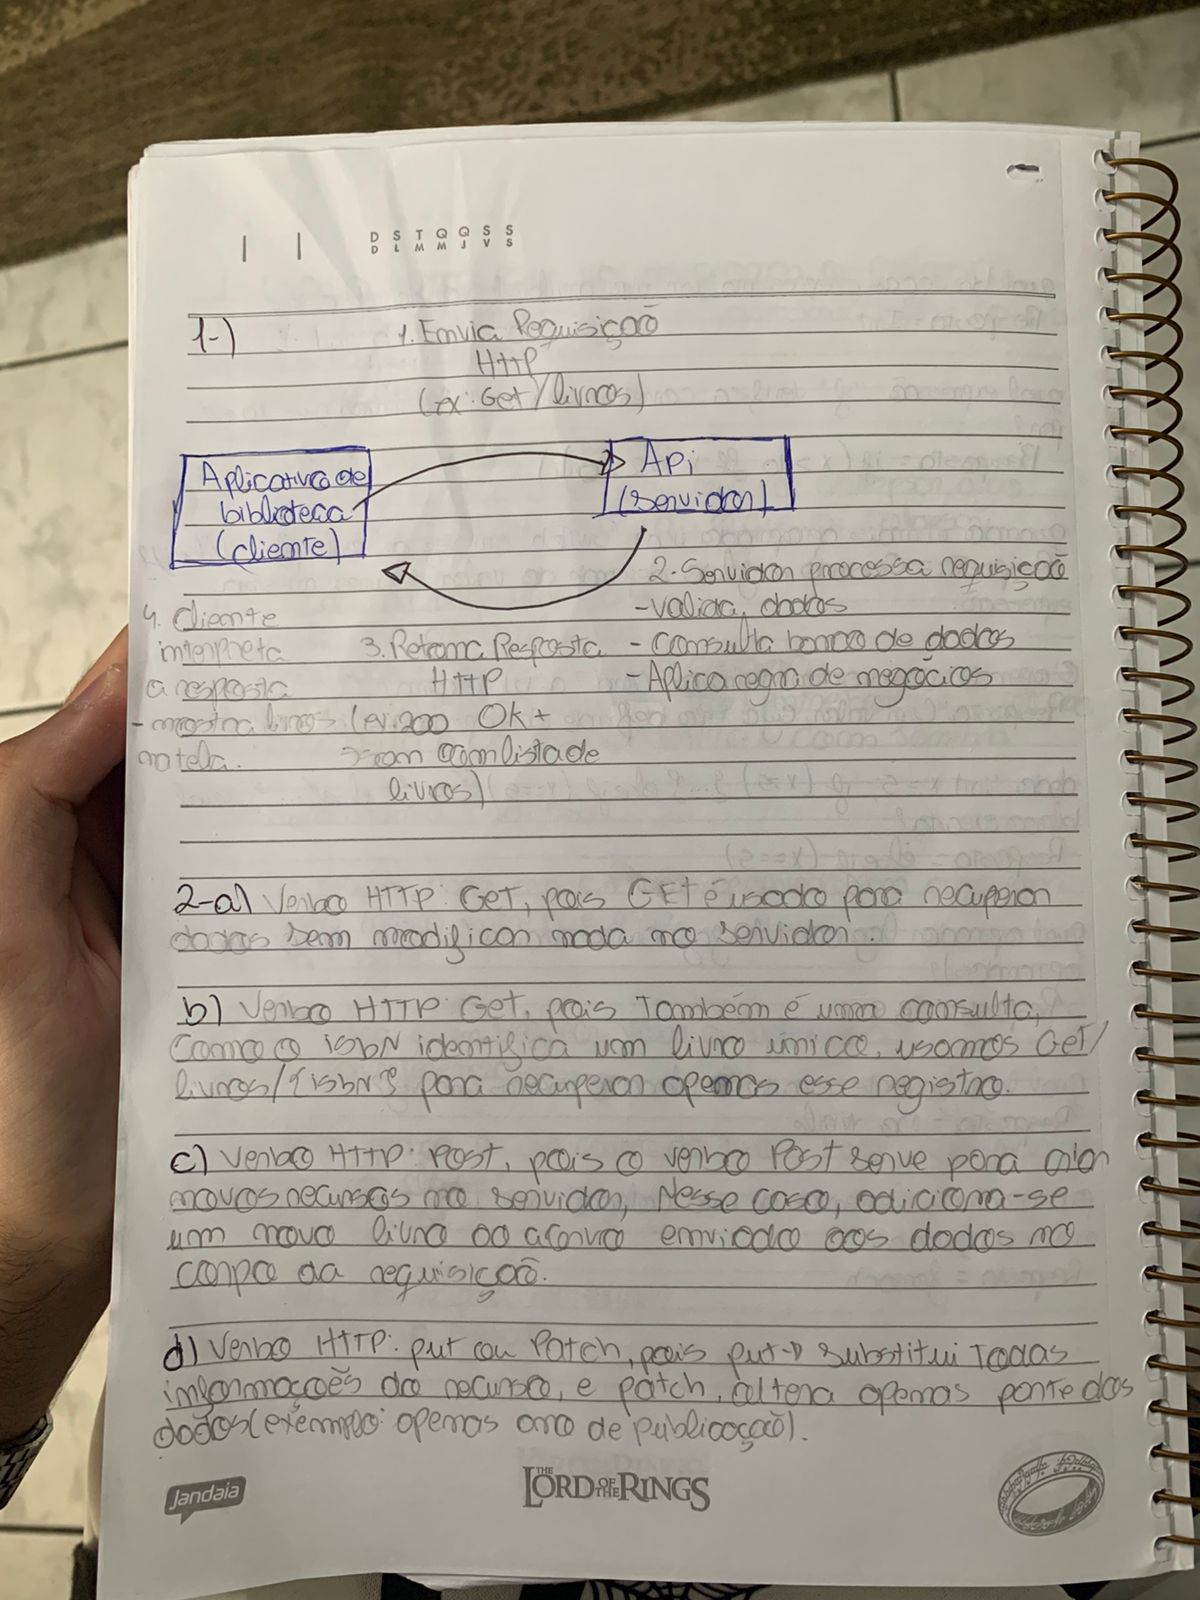 D S T Q Q S S
D L M M J V S
1-)
1. Envia Requisição
HTTP
(ex: Get/livros)
Aplicativo de
biblioteca
(cliente)
Api
(servidor)
2. Servidor processa requisição
- valida dados
- Consulta banco de dados
- Aplica regra de negócios
3. Retorna Resposta
HTTP
(ex: 200 OK +
com lista de
livros)
4. Cliente
interpreta
a resposta
- mostra livros
na tela.
2-a) Verbo HTTP: GET, pois GET é usado para recuperar
dados sem modificar nada no servidor.
b) Verbo HTTP: Get, pois Também é uma consulta,
Como o isbN identifica um livro único, usamos Get/
livros/{isbN} para recuperar apenas esse registro.
c) Verbo HTTP: Post, pois o verbo Post serve para criar
novos recursos no servidor, Nesse caso, adiciona-se
um novo livro ao acervo enviado aos dados no
corpo da requisição.
d) Verbo HTTP: put ou Patch, pois put→ substitui Todas
informações do recurso, e patch, altera apenas parte dos
dados (exemplo: apenas ano de publicação).
Jandaia
THE LORD OF THE RINGS